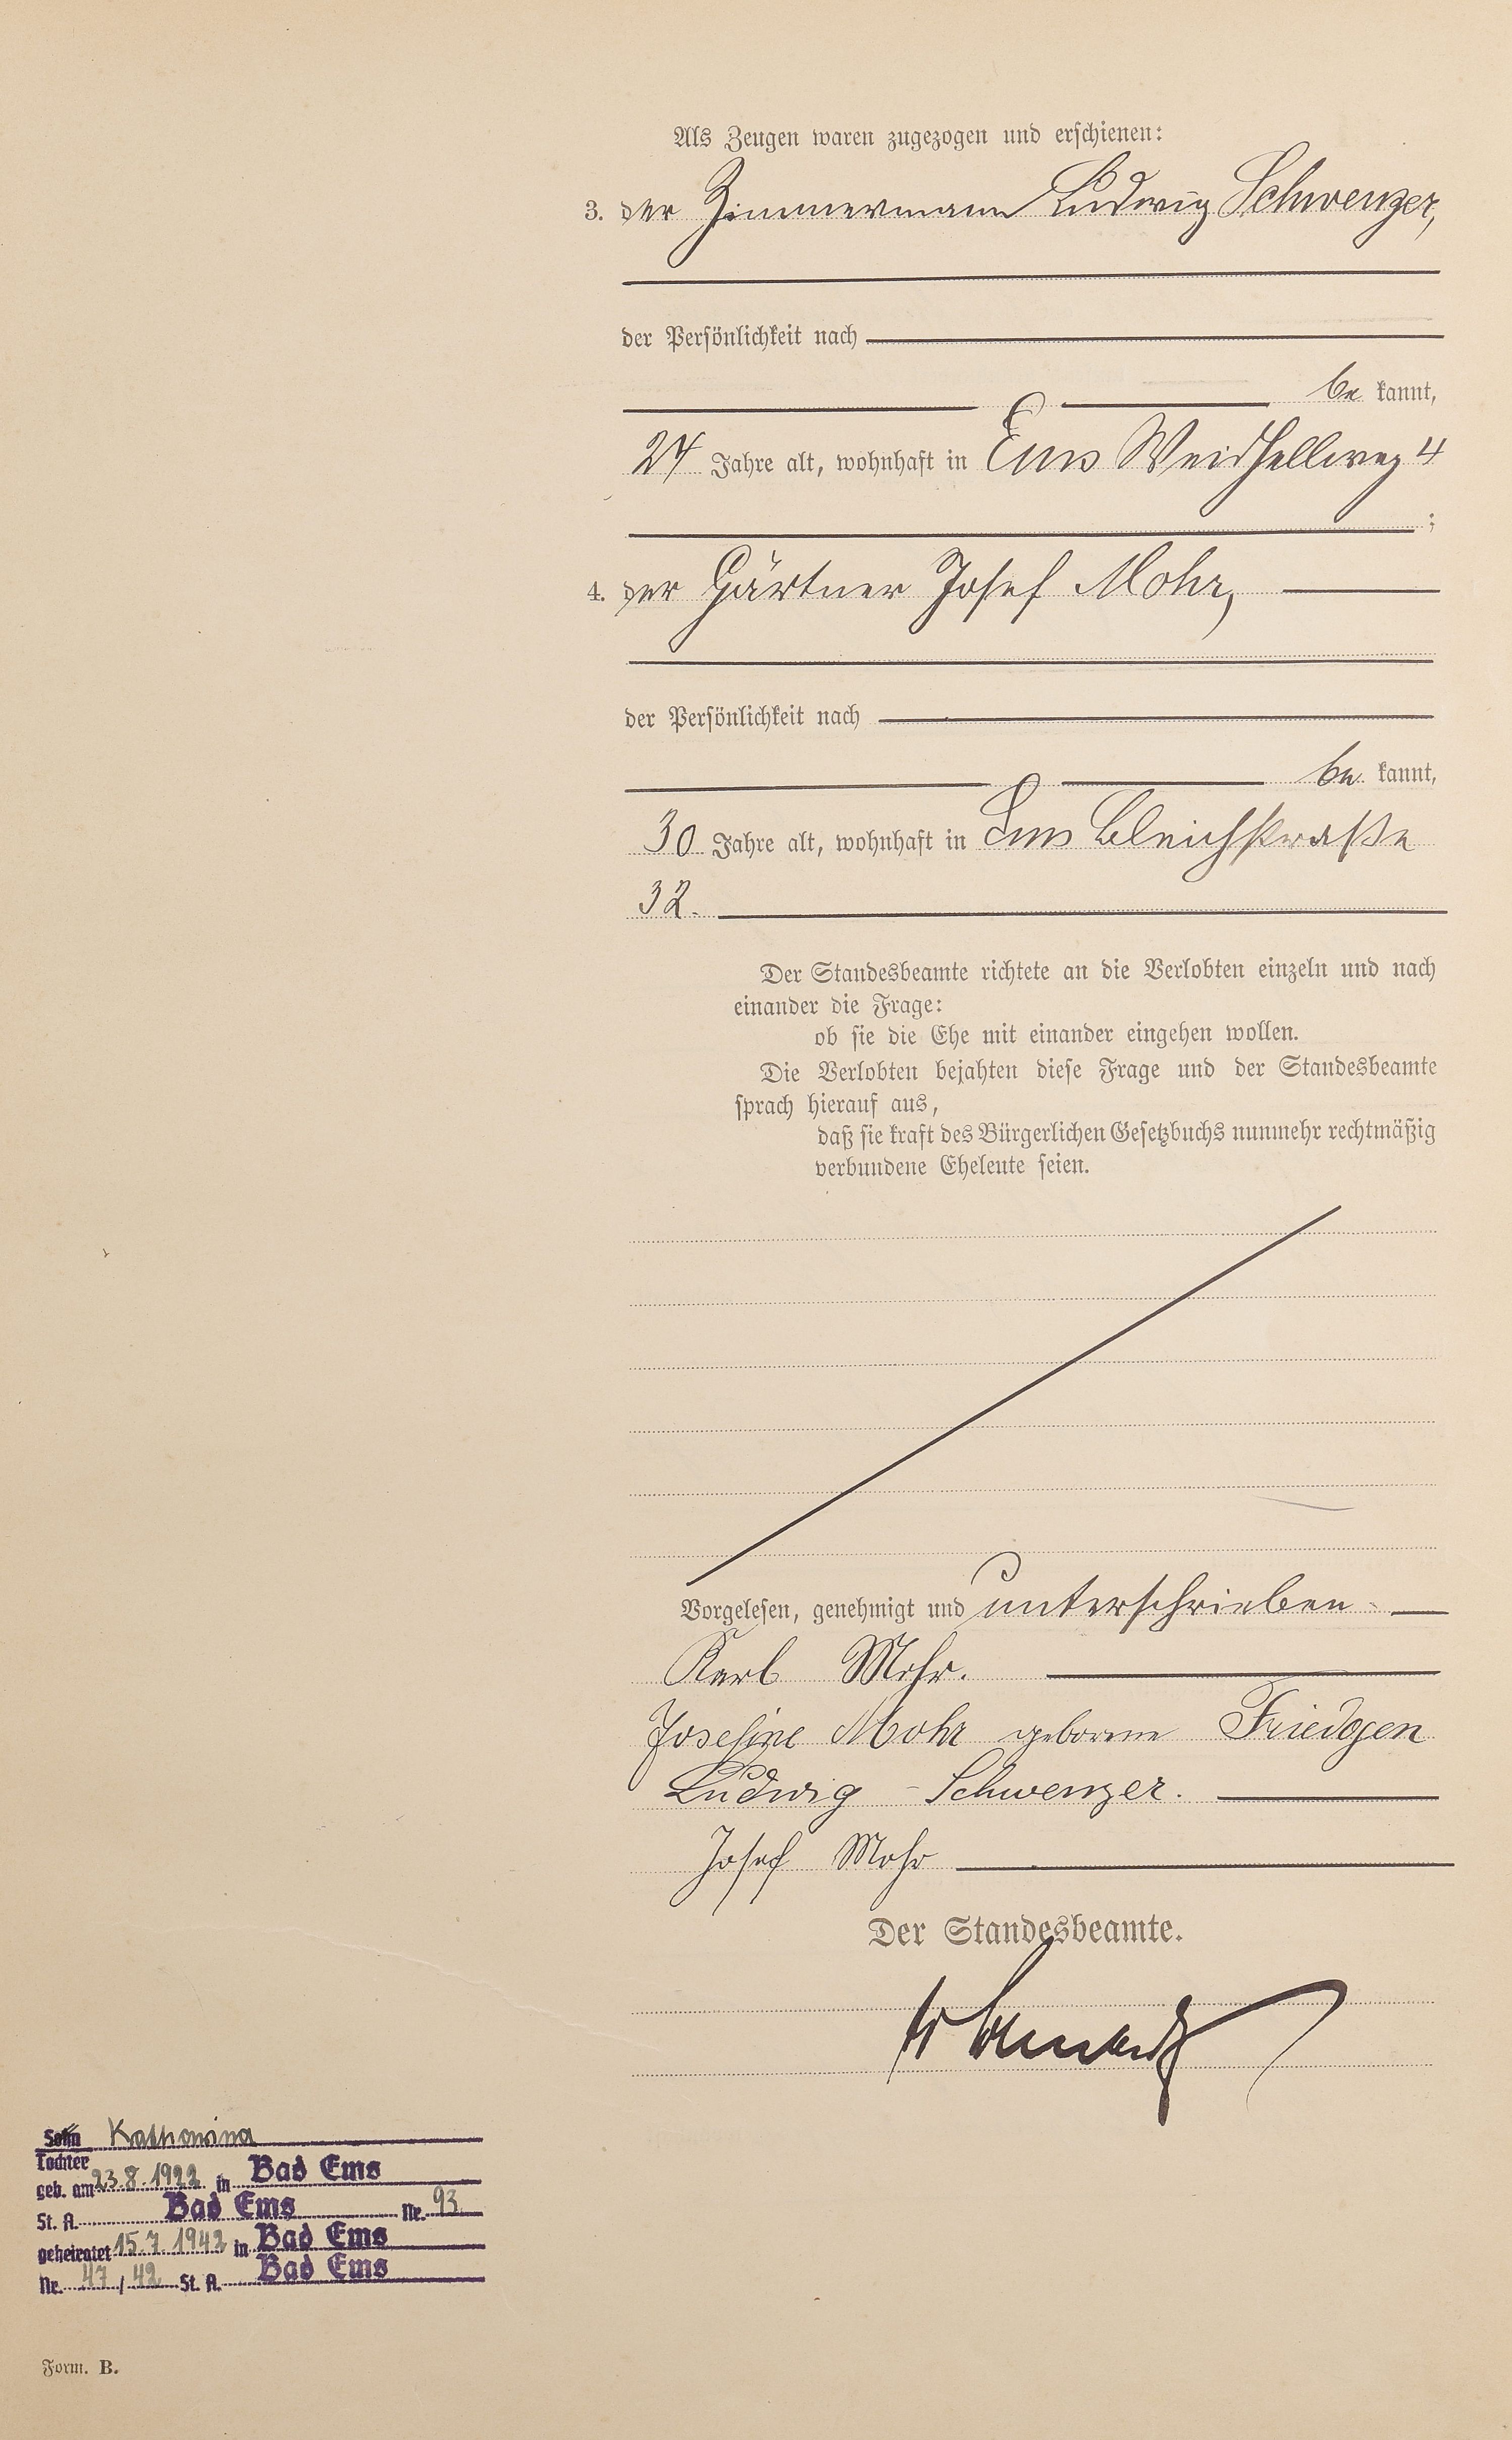 Als Zeugen waren zugezogen und erschienen:
3. der Zimmermann Ludwig Schwenzer,
der Persönlichkeit nach
be kannt,
24 Jahre alt, wohnhaft in Ems Weidhellweg 4
;
4. der Gärtner Josef Mohr,
der Persönlichkeit nach
be kannt,
30 Jahre alt, wohnhaft in Ems Bleichstraße
32.
Der Standesbeamte richtete an die Verlobten einzeln und nach
einander die Frage:
ob sie die Ehe mit einander eingehen wollen.
Die Verlobten bejahten diese Frage und der Standesbeamte
sprach hierauf aus,
daß sie kraft des Bürgerlichen Gesetzbuchs nunmehr rechtmäßig
verbundene Eheleute seien.
Vorgelesen, genehmigt und unterschrieben
Karl Mohr.
Josefine Mohr geborene Friedgen
Ludwig Schwenzer.
Josef Mohr
Der Standesbeamte.
Sohn Katharina
Tochter
geb. am 23.8.1922 in Bad Ems
St. A. Bad Ems Nr. 93
geheiratet 15.7.1942 in Bad Ems
Nr. 47 / 42 St. A. Bad Ems
Form. B.